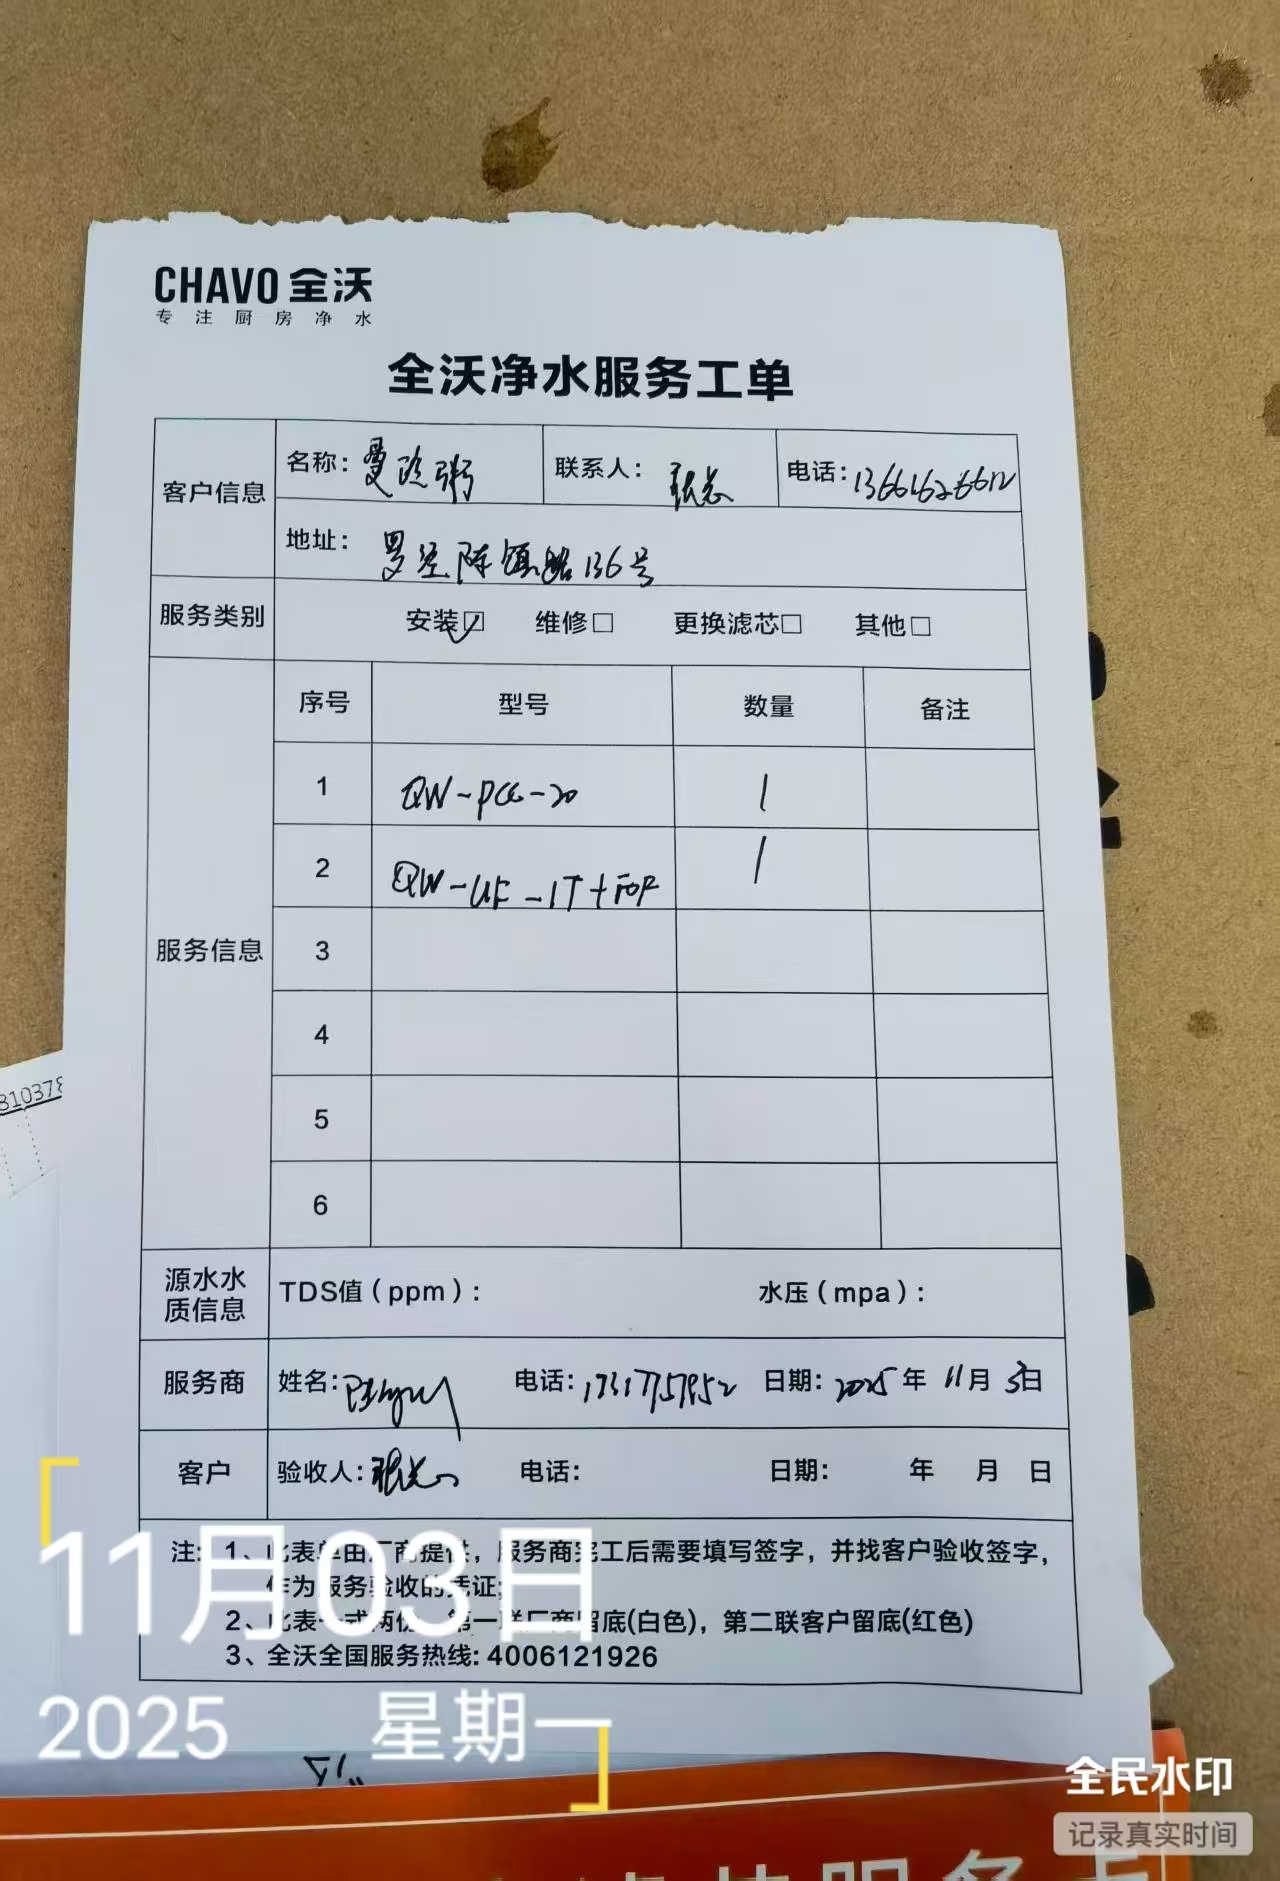 CHAVO 全沃
专注厨房净水
全沃净水服务工单
客户信息
名称：曼玲粥
联系人：张总
电话：13661626612
地址：罗泾陈镇路136号
服务类别
安装☑ 维修□ 更换滤芯□ 其他□
服务信息
序号 型号 数量 备注
1 QW-PCG-20 1
2 QW-UF-1T+FOF 1
3
4
5
6
源水水质信息
TDS值（ppm）： 水压（mpa）：
服务商
姓名： 电话：17317757952 日期：2025年11月3日
客户
验收人：张总 电话： 日期： 年 月 日
注：1、此表单由厂商提供，服务商完工后需要填写签字，并找客户验收签字，
作为服务验收的凭证；
2、此表一式两份，第一联厂商留底(白色)，第二联客户留底(红色)
3、全沃全国服务热线：4006121926
810378
11月03日
2025 星期一
全民水印
记录真实时间
服务卡